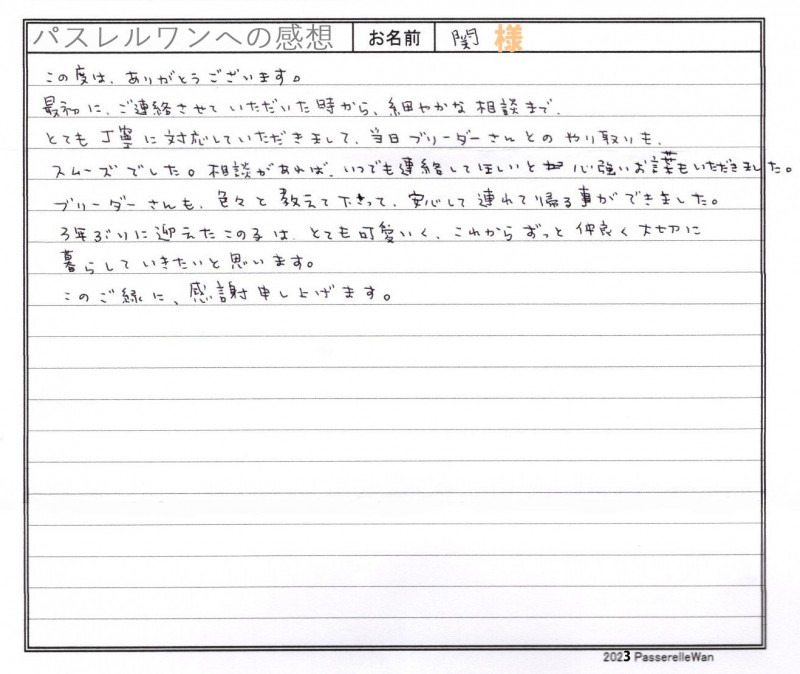 パスレルワンへの感想 お名前 関 様
この度は、ありがとうございます。
最初に、ご連絡させていただいた時から、細やかな相談まで、
とても丁寧に対応していただきまして、当日ブリーダーさんとのやり取りも、
スムーズでした。相談があれば、いつでも連絡してほしいと心強いお言葉もいただきました。
ブリーダーさんも、色々と教えて下さって、安心して連れて帰る事ができました。
3年ぶりに迎えたこの子は、とても可愛いく、これからずっと仲良く大切に
暮らしていきたいと思います。
このご縁に、感謝申し上げます。
2023 PasserelleWan